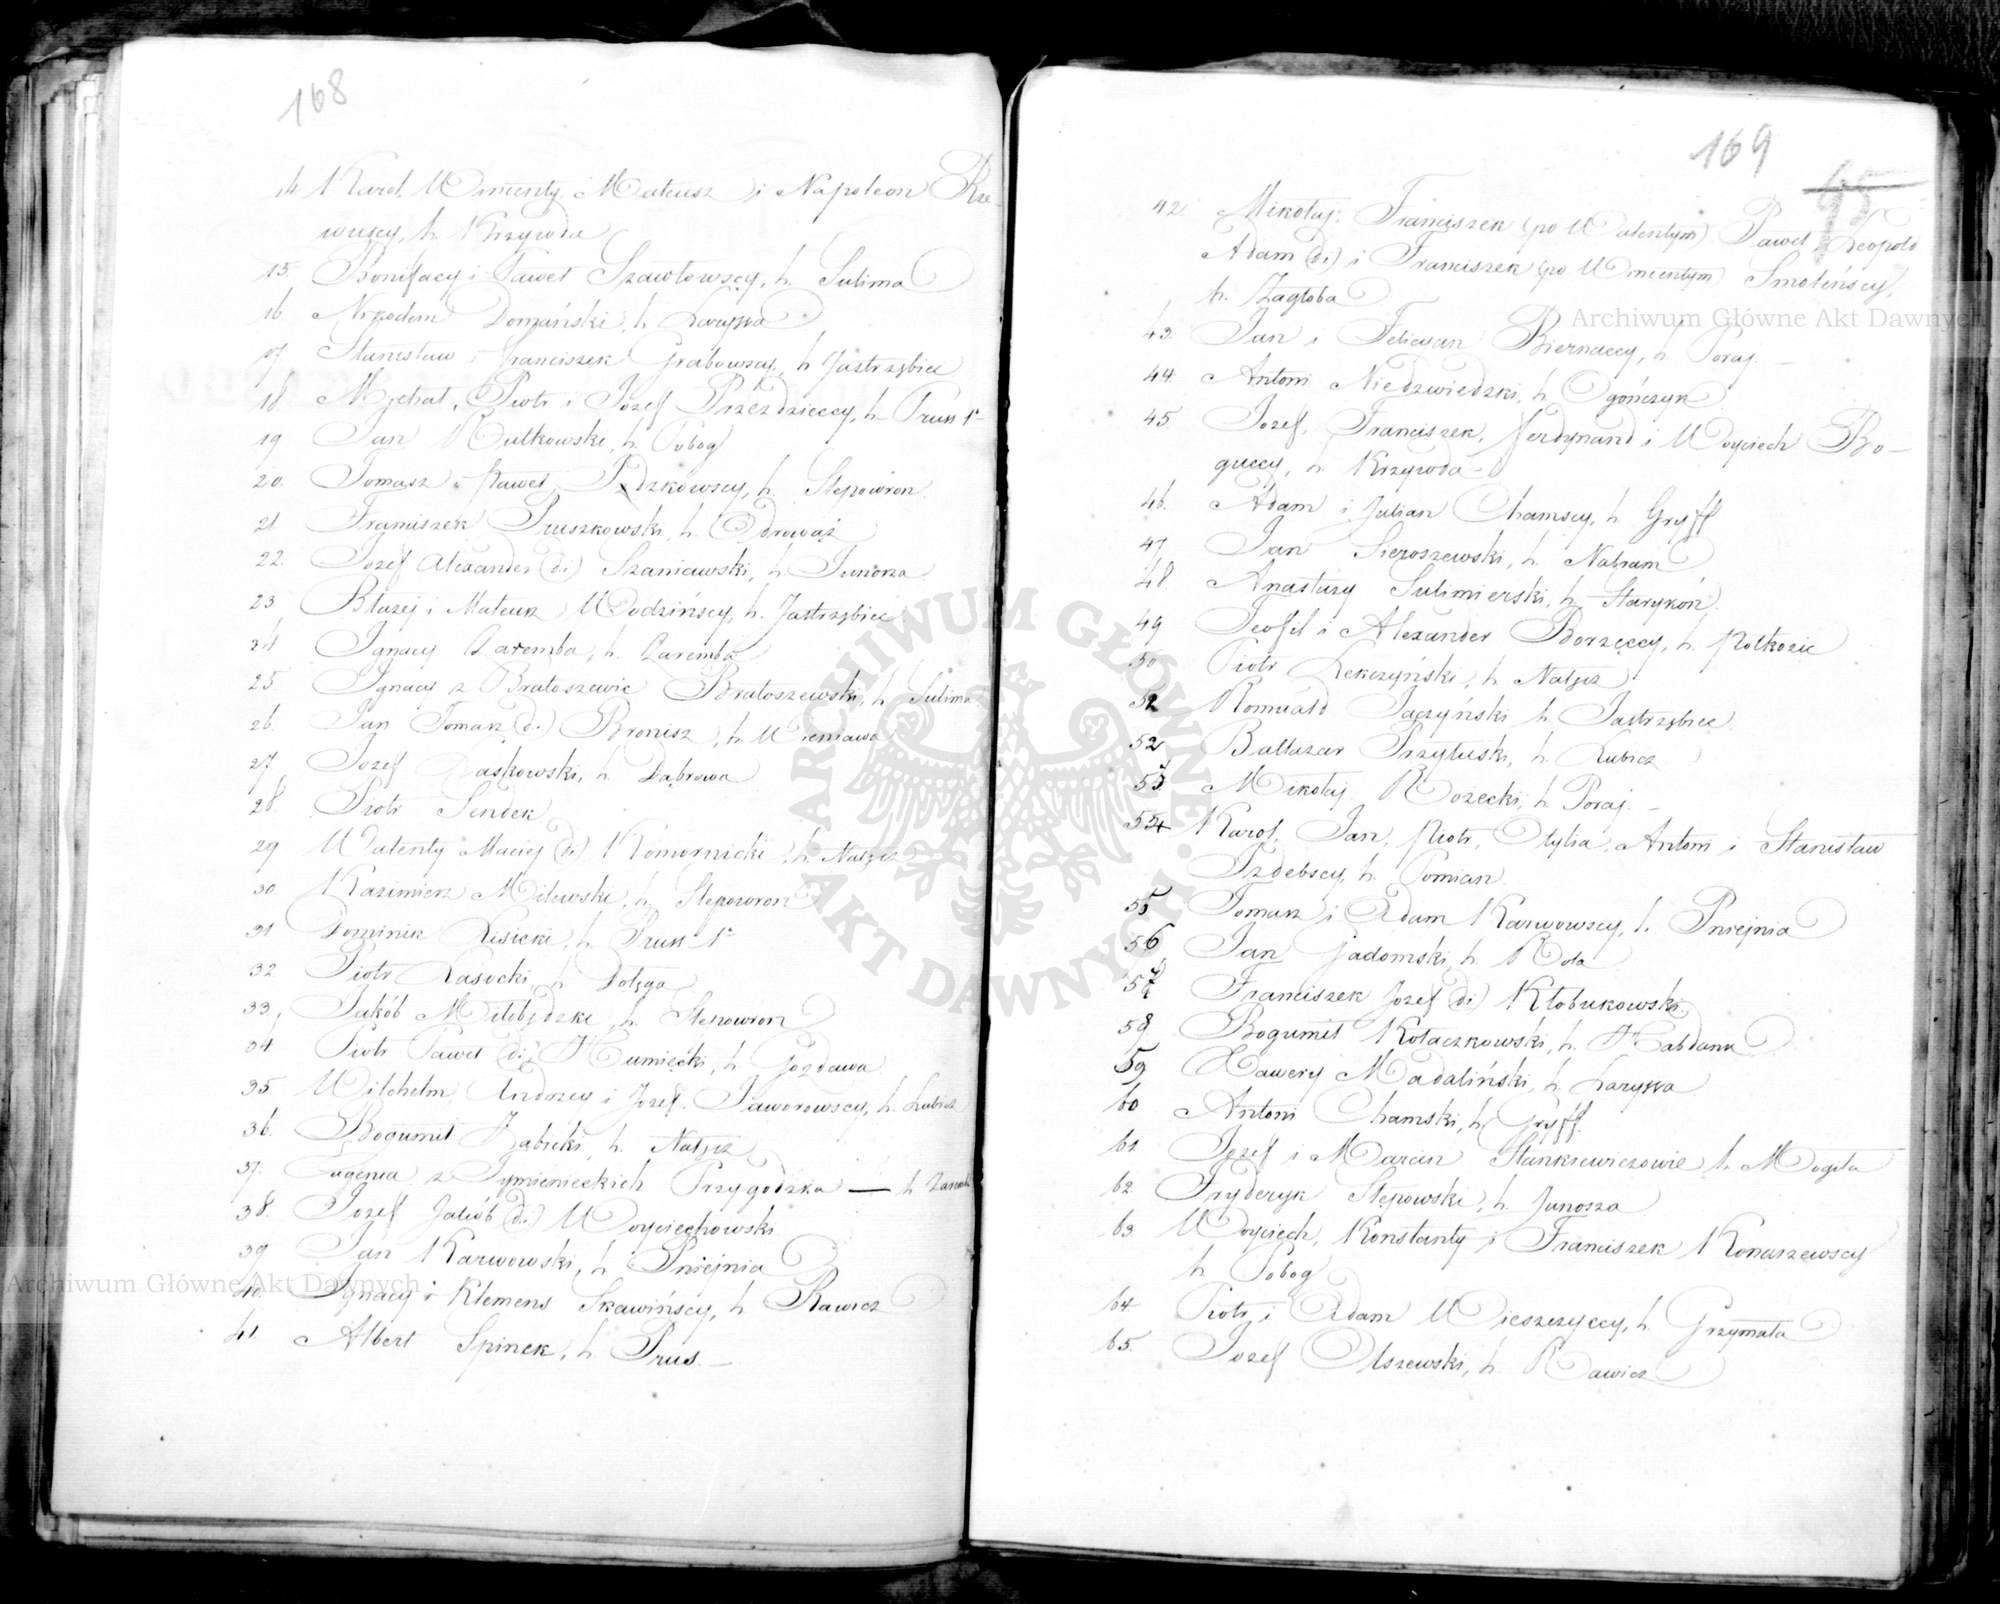 168
14 Karol, Wincenty, Mateusz i Napoleon Rze-
wuscy, h. Krzywda
15. Bonifacy i Paweł Szawłowscy, h. Sulima
16. Nikodem Domański, h. Larysza
17 Stanisław i Franciszek Grabowscy, h. Jastrzębiec
18. Michał, Piotr i Józef Przeździeccy, h. Pruss 1º
19 Jan Rutkowski, h. Pobog
20. Tomasz i Paweł Pędzkowscy, h. Slepowron
21. Franciszek Pruszkowski, h. Odrowąż
22. Jozef Alexander (2i) Szaniawski, h. Junosza
23. Błażej i Mateusz Wodzińscy, h. Jastrzębiec
24 Ignacy Zaremba, h. Zaremba
25. Ignacy z Bratoszewic Bratoszewski, h. Sulima
26. Jan Tomasz (2i) Bronisz, h. Wieniawa
27. Jozef Laskowski, h. Dąbrowa
28. Piotr Sendek
29 Walenty Maciej (2i) Komornicki, h. Nałęcz
30. Kazimierz Milewski, h. Slepowron
31 Dominik Lisicki, h. Pruss 1º
32 Piotr Lasocki, h. Dołęga
33. Jakób Milobędzki, h. Slepowron
34. Piotr Paweł (2i) Humięcki, h. Gozdawa
35 Wilchelm, Andrzey i Jozef Jaworowscy, h. Lubicz
36. Bogumił Ząbicki, h. Nałęcz
37. Eugenia z Tymienieckich Przygodzka — h. Zaremba
38. Jozef Jakób (2i) Woyciechowski
39 Jan Karwowski, h. Pniejnia
40. Ignacy i Klemens Skawińscy, h. Rawicz
41. Albert Spinek, h. Prus. —
169
42. Mikołaj, Franciszek (po Walentym) Paweł, Leopold
Adam (2i) i Franciszek (po Wincentym) Smoleńscy,
h. Zagłoba
43. Jan i Felicyan Biernaccy, h. Poraj. —
44. Antoni Niedzwiedzki, h. Ogończyk
45. Jozef, Franciszek, Ferdynand i Woyciech Bo-
guccy, h. Krzywda
46. Adam i Julian Chamscy, h. Gryff
47 Jan Sieroszewski, h. Nabram
48. Anastazy Sulimierski, h. Starykoń
49 Teofil i Alexander Borzęccy, h. Połkozic
50 Piotr Lekczyński, h. Nałęcz
51 Romuald Jaczyński h. Jastrzębiec
52 Baltazar Przyłuski, h. Lubicz
53 Mikołaj Rozecki, h. Poraj. —
54 Karol, Jan, Piotr, Otylia, Antoni i Stanisław
Izdebscy, h. Pomian
55 Tomasz i Adam Karwowscy, h. Pniejnia
56 Jan Jadomski, h. Rola
57 Franciszek Jozef (2i) Kłobukowski
58 Bogumił Kołaczkowski, h. Habdank
59 Xawery Madaliński, h. Larysza
60 Antoni Chamski, h. Gryff.
61. Jozef i Marcin Stankiewiczowie h. Mogiła
62. Fryderyk Stępowski, h. Junosza
63. Woyciech, Konstanty i Franciszek Konarzewscy
h. Pobog
64 Piotr i Adam Wieszczyccy, h. Grzymała
65. Jozef Olszewski, h. Rawicz
Archiwum Główne Akt Dawnych
Archiwum Główne Akt Dawnych
ARCHIWUM GŁÓWNE AKT DAWNYCH